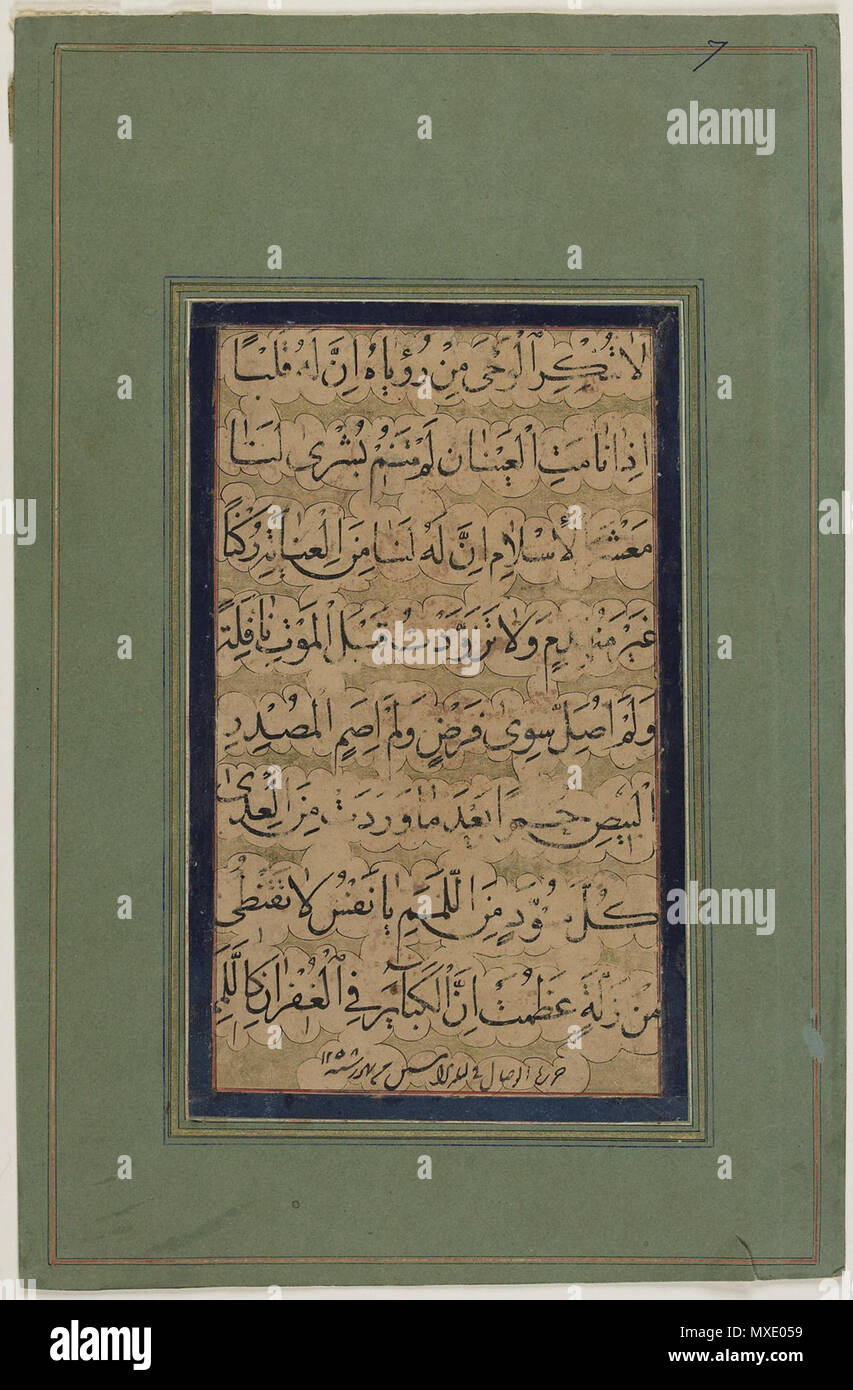 7
لَا تُنْكِرِ الْوَحْىَ مِنْ رُؤْيَاهُ اِنَّ لَهُ قَلْبًا
اِذَا نَامَتِ الْعَيْنَانِ لَمْ تَنَمْ بُشْرٰى لَنَا
مَعْشَرَ الْاِسْلَامِ اِنَّ لَهُ لَنَا مِنَ الْعِنَايَةِ رُكْنًا
غَيْرَ مُنْهَدِمٍ وَلَا تَزَوَّدْتُ قَبْلَ الْمَوْتِ نَافِلَةً
وَلَمْ اُصَلِّ سِوٰى فَرْضٍ وَلَمْ اَصُمِ الْمُصْدِرِ
الْبِيضِ حُمْرًا بَعْدَ مَا وَرَدَتْ مِنَ الْعِدٰى
كُلَّ مُسْوَدٍّ مِنَ اللِّمَمِ يَا نَفْسُ لَا تَقْنَطِى
مِنْ زَلَّةٍ عَظُمَتْ اِنَّ الْكَبَآئِرَ فِى الْغُفْرَانِ كَاللَّمَمِ
حرره الوصال فى سنه ١٢٥٨
alamy
Image ID: MXE059
www.alamy.com